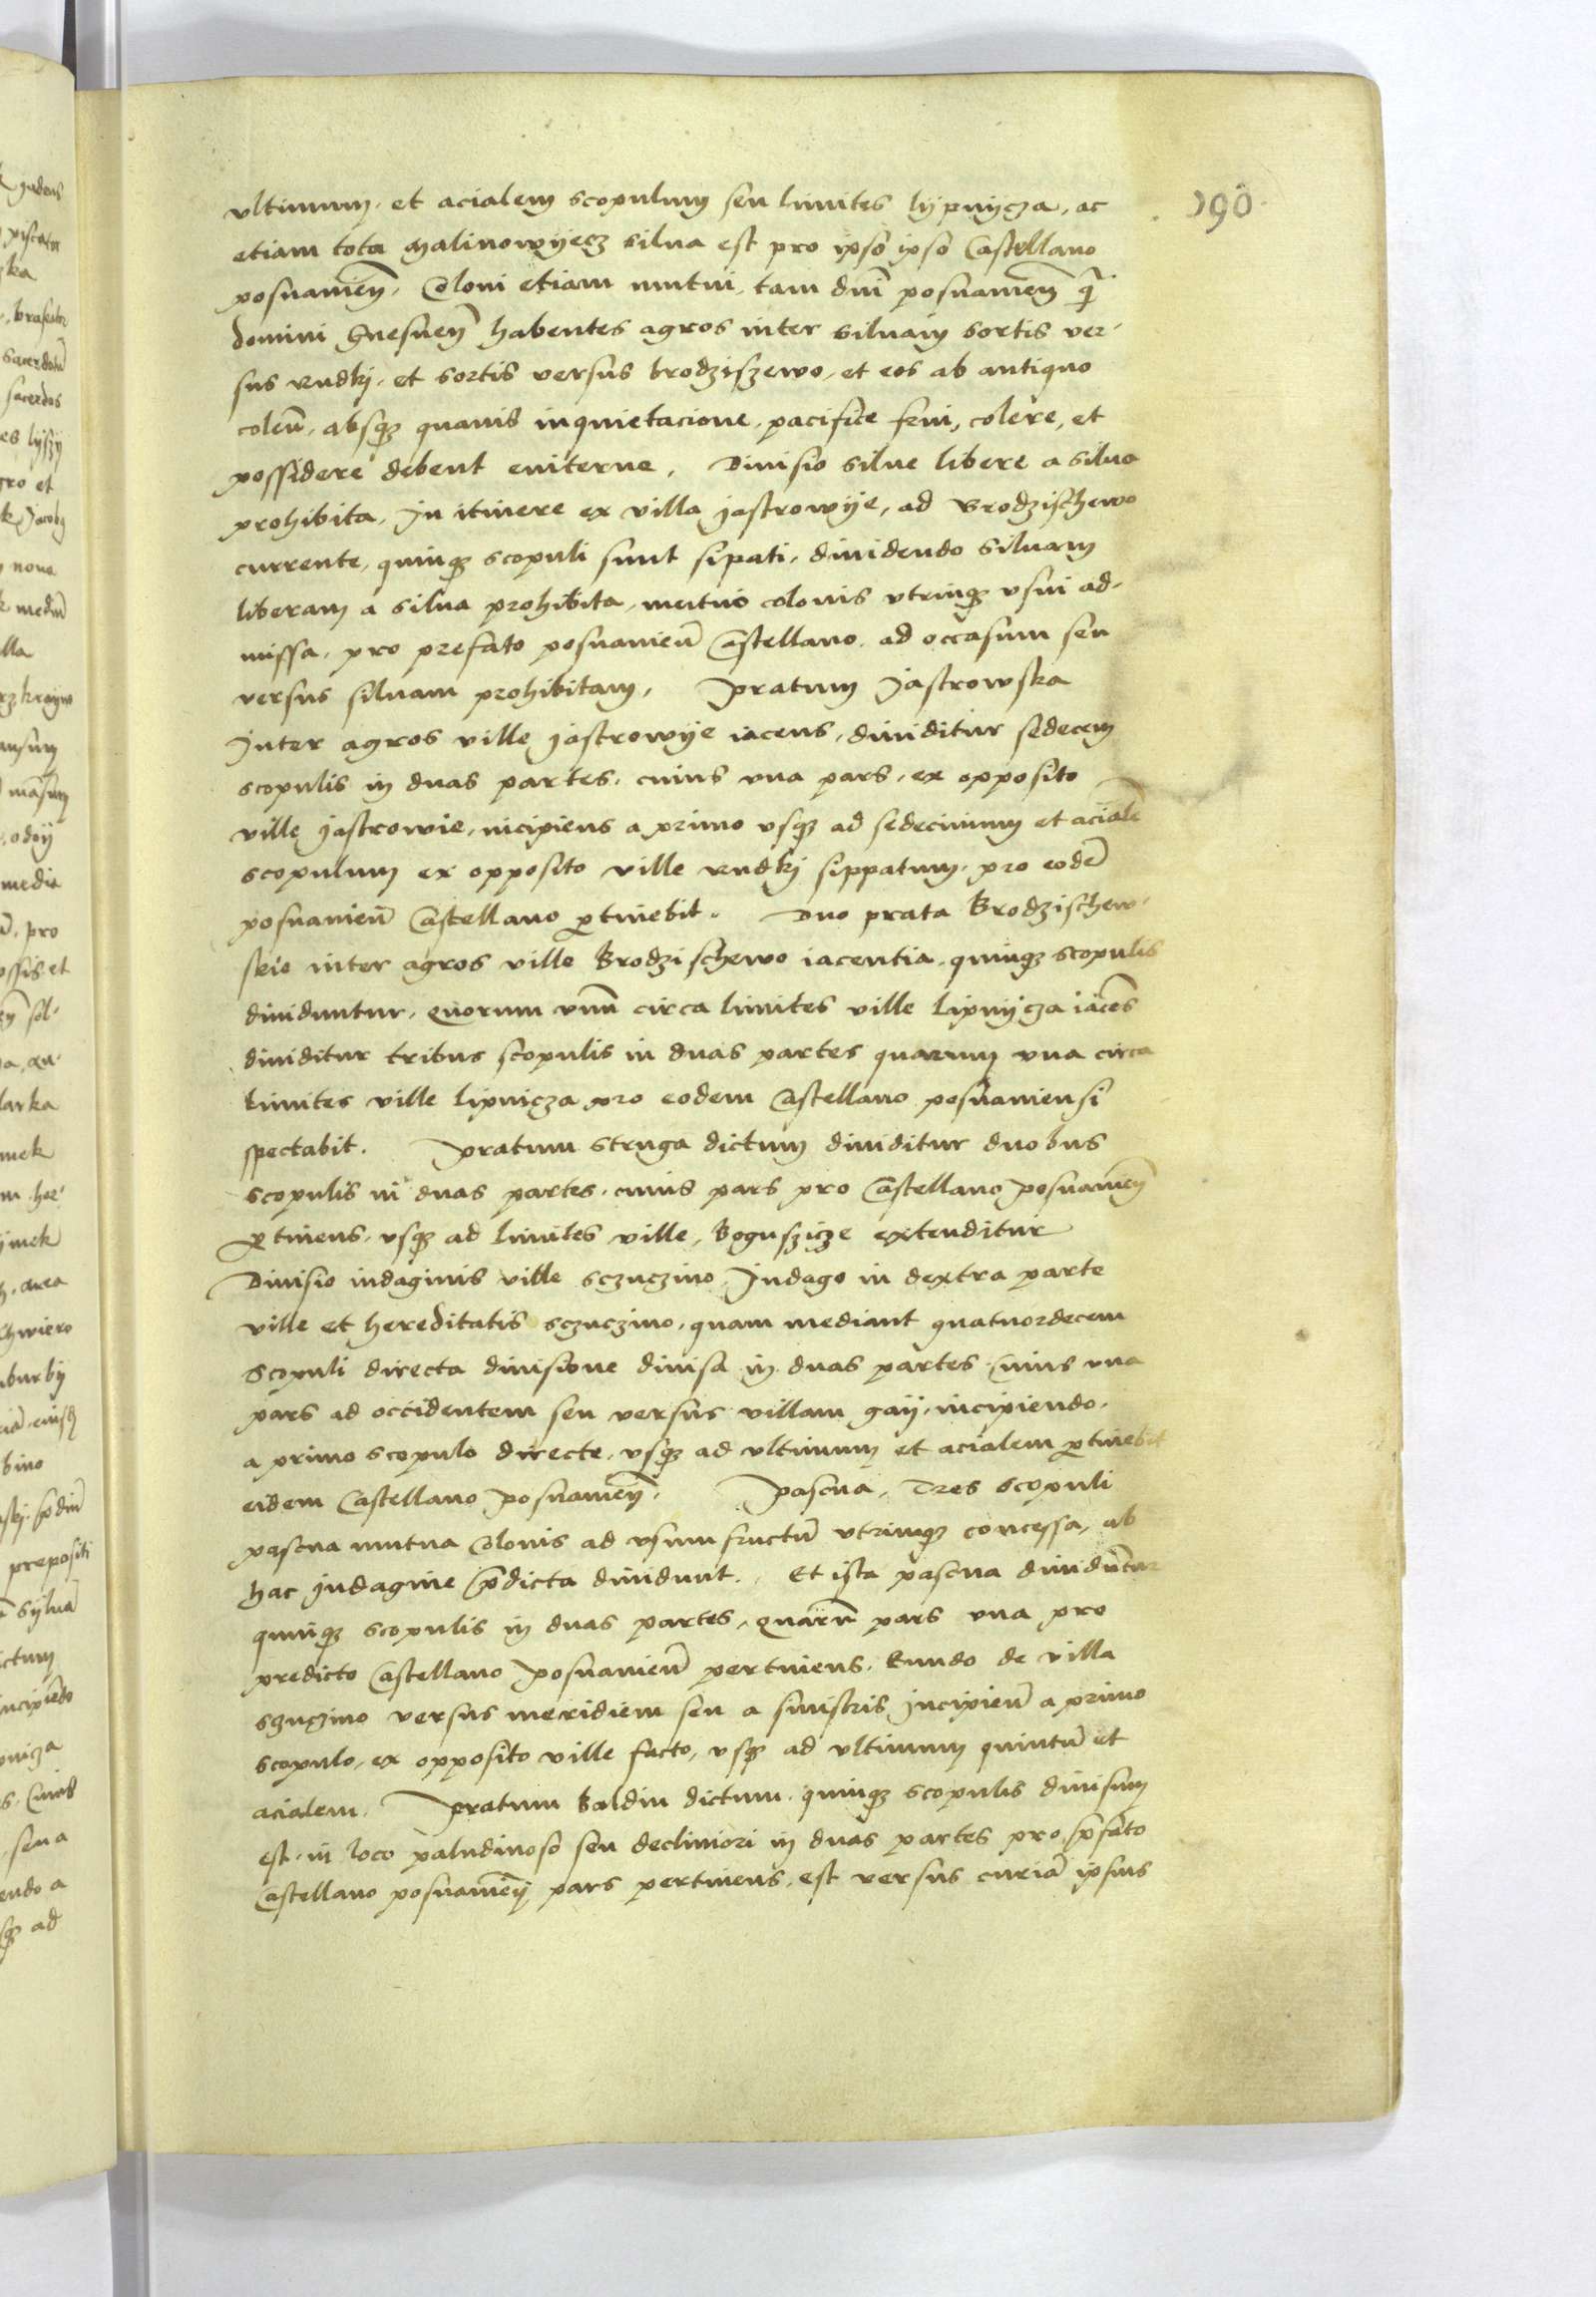 190
vltimum, et acialem scopulum seu limites lijpnijcza, ac
etiam tota Malinowijecz silua est pro ipso ipso Castellano
posnanień. Coloni etiam mutui, tam dnī posnanień q̄
domini Gnesneñ habentes agros inter siluam sortis ver-
sus rudkj, et sortis versus brodziszewo, et eos ab antiquo
coleñ, absq̃ quauis inquietacione, pacifice frui, colere, et
possidere debent euiterne. Diuisio silue libere a silua
prohibita, In itinere ex villa jastrowije, ad Brodzischewo
currente, quinq̃ scopuli sunt sipati, diuidendo siluam
liberam a silua prohibita, mutuo colonis vtrinq̃ vsui ad-
missa, pro prefato posnanieñ Castellano ad occasum seu
versus siluam prohibitam. Pratum Jastrowska
Inter agros ville jastrowije iacens, diuiditur sedecem
scopulis in duas partes, cuius vna pars, ex opposito
ville jastrowie, incipiens a primo vsq̃ ad sedecimum et acialē
scopulum ex opposito ville rudkj sippatum, pro eodē
posnanieñ Castellano ꝑtinebit. Duo prata Brodzischew-
skie inter agros ville Brodzischewo iacentia, quinq̃ scopulis
diuiduntur, quorum vnū circa limites ville Lipnijcza iacēs
diuiditur tribus scopulis in duas partes quarum vna circa
limites ville Lipnicza pro eodem Castellano posnaniensi
spectabit. Pratum struga dictum diuiditur duobus
scopulis in duas partes, cuius pars pro Castellano posnanień
ꝑtinens, vsq̃ ad limites ville, Boguszicze extenditur
Diuisio indaginis ville sczuczino Indago in dextra parte
ville et hereditatis sczuczino, quam mediant quatuordecem
Scopuli directa diuisione diuisa in duas partes cuius vna
pars ad occidentem seu versus villam gaij, incipiendo,
a primo scopulo directe, vsq̃ ad vltimum et acialem ꝑtinebit
eidem Castellano posnanień. Pascua, Tres scopuli
pascua mutua Colonis ad vsumfructū vtrinq̃ concessa, ab
hac Indagine p̄dicta diuidunt. Et ista pascua diuidūtur
quinq̃ scopulis in duas partes, quarū pars vna pro
predicto Castellano posnanieñ pertinens. Eundo de villa
sczuczino versus meridiem seu a sinistris Incipieñ a primo
scopulo, ex opposito ville facto, vsq̃ ad vltimum quintū et
acialem. Pratum Baldin dictum quinq̃ scopulis diuisum
est, in loco paludinoso seu decliniori in duas partes pro p̄fato
Castellano posnanień pars pertinens, est versus curiā ipsius